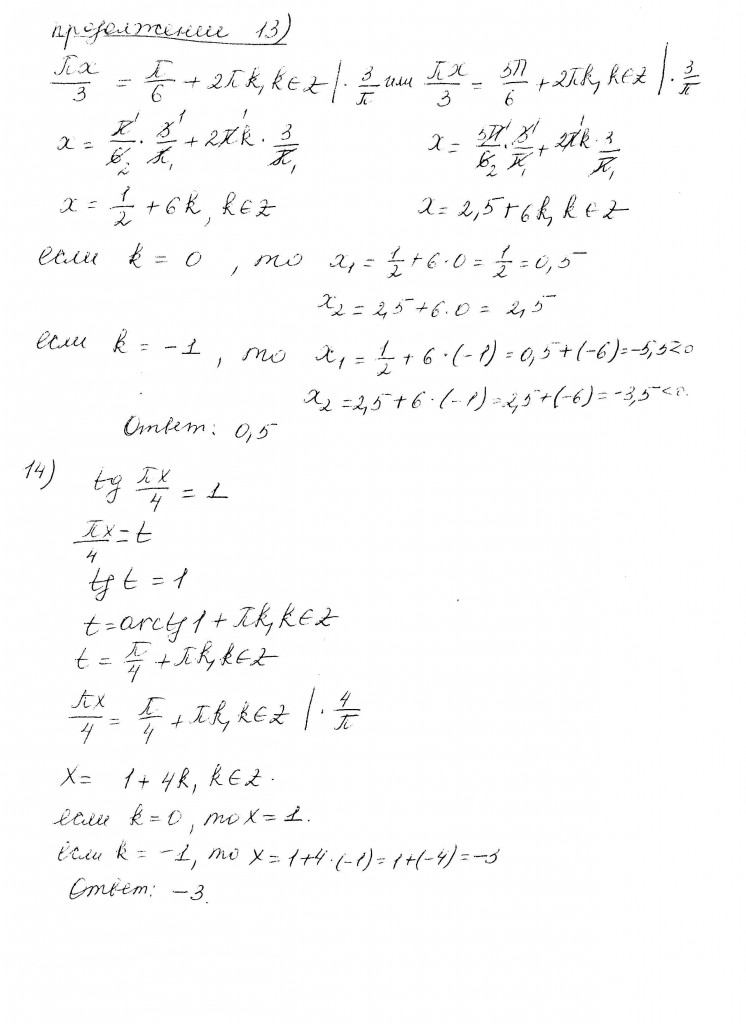 продолжение 13)
πx/3 = π/6 + 2πk, k∈Z | · 3/π или πx/3 = 5π/6 + 2πk, k∈Z | · 3/π
x = π/6 · 3/π + 2πk · 3/π x = 5π/6 · 3/π + 2πk · 3/π
x = 1/2 + 6k, k∈Z x = 2,5 + 6k, k∈Z
если k = 0, то x₁ = 1/2 + 6·0 = 1/2 = 0,5
x₂ = 2,5 + 6·0 = 2,5
если k = -1, то x₁ = 1/2 + 6·(-1) = 0,5 + (-6) = -5,5 < 0
x₂ = 2,5 + 6·(-1) = 2,5 + (-6) = -3,5 < 0.
Ответ: 0,5
14) tg πx/4 = 1
πx/4 = t
tg t = 1
t = arctg 1 + πk, k∈Z
t = π/4 + πk, k∈Z
πx/4 = π/4 + πk, k∈Z | · 4/π
x = 1 + 4k, k∈Z.
если k = 0, то x = 1.
если k = -1, то x = 1 + 4·(-1) = 1 + (-4) = -3
Ответ: -3.